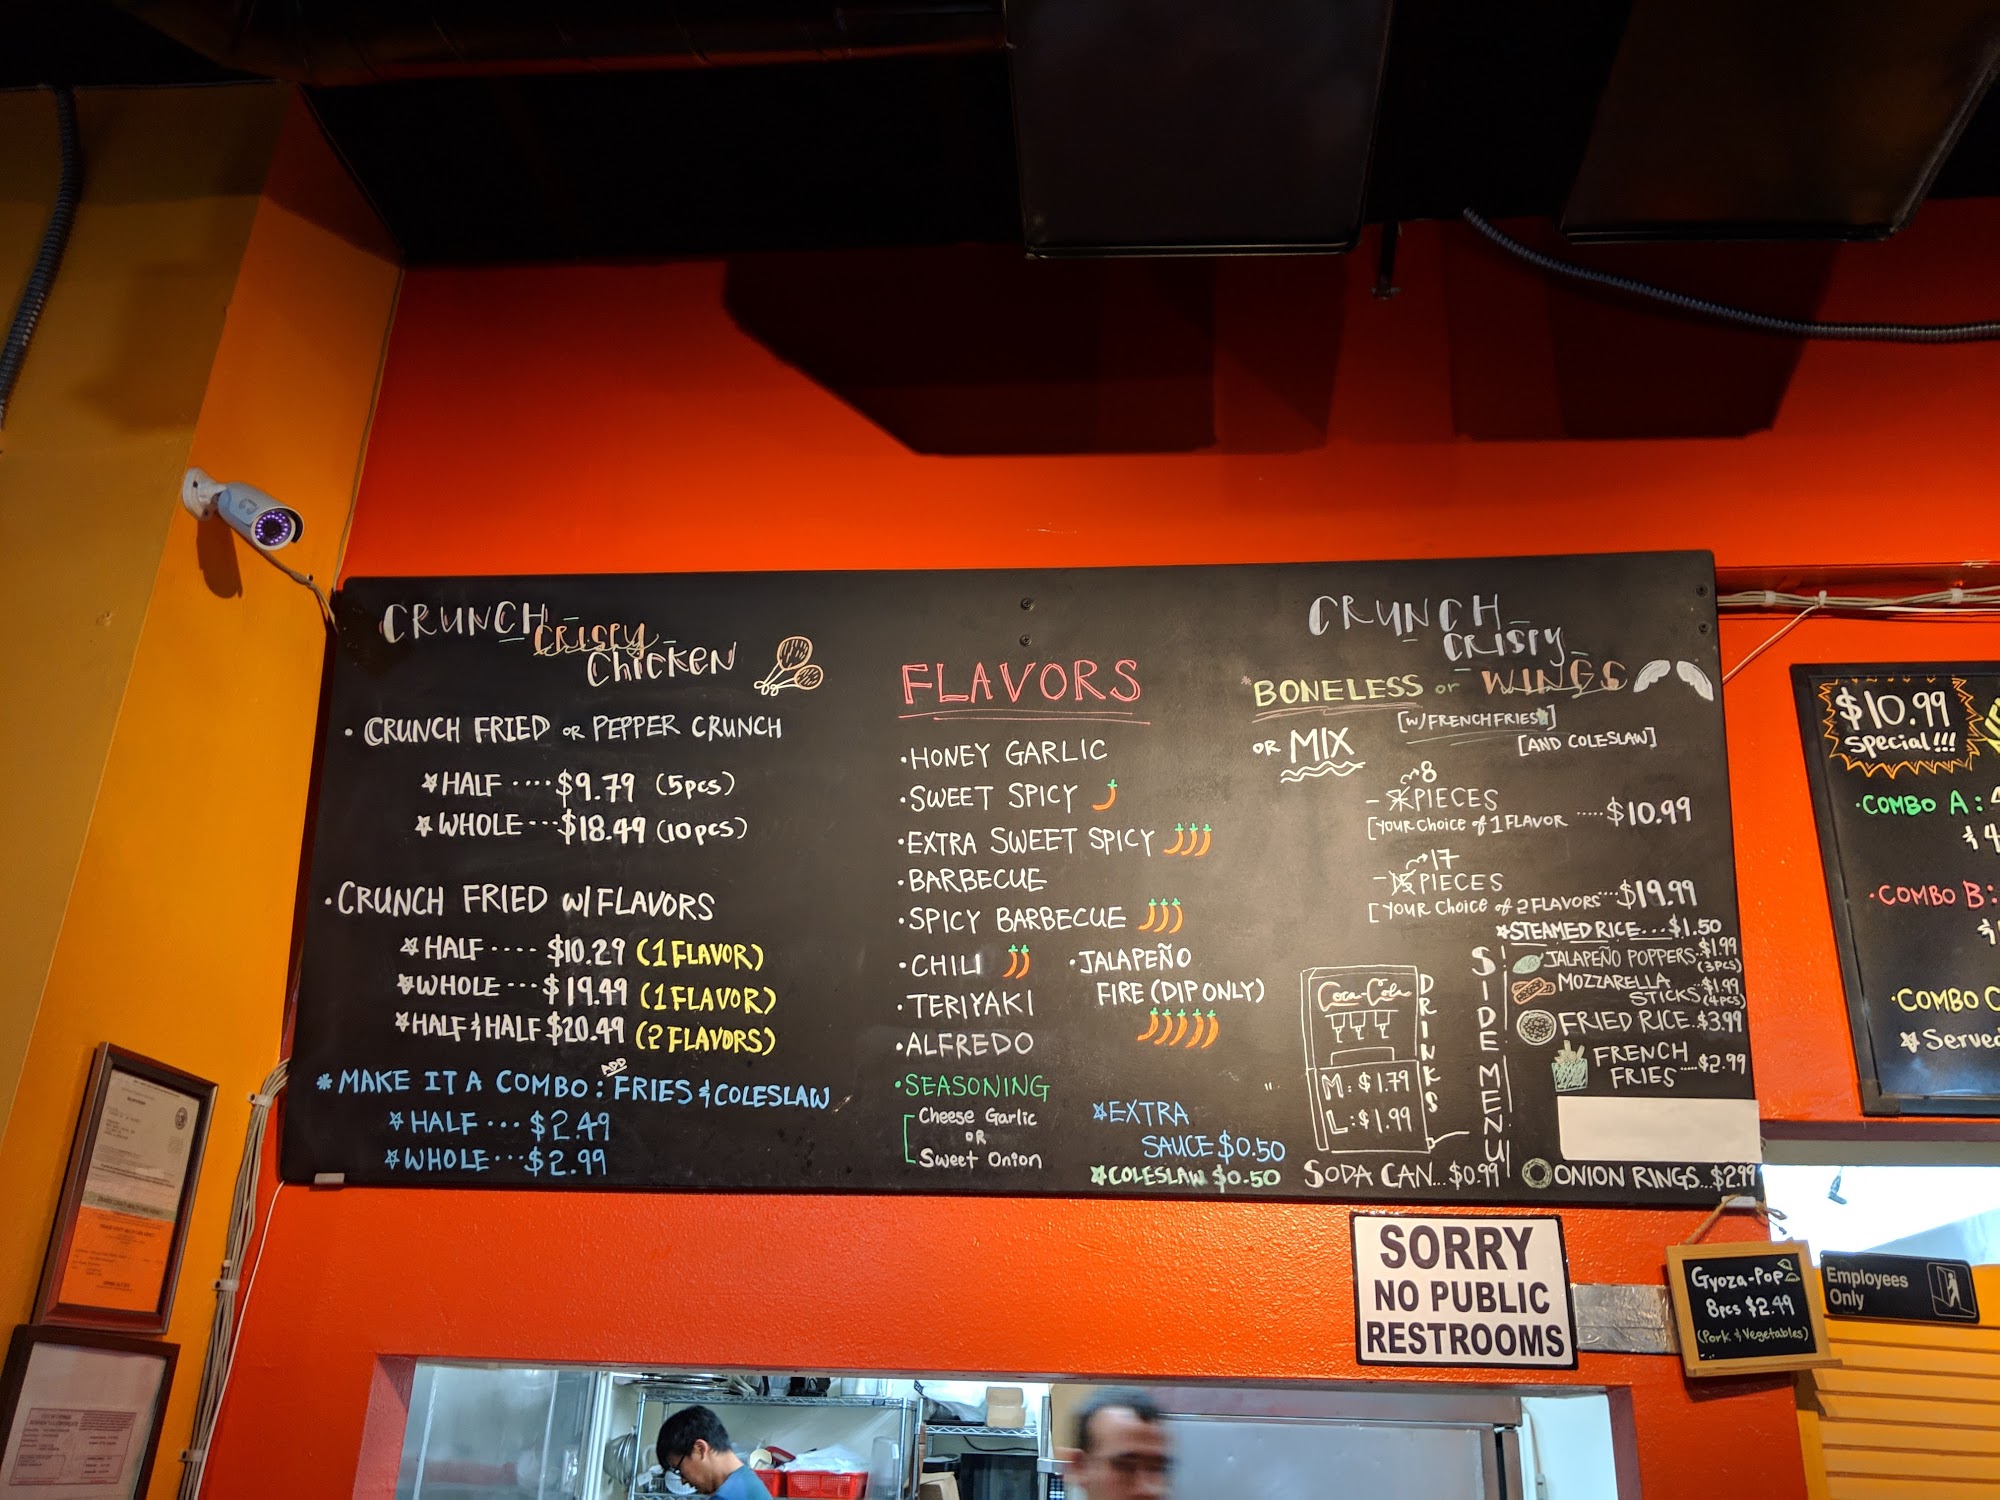 CRUNCH
CRISPY
CHICKEN
• CRUNCH FRIED OR PEPPER CRUNCH
HALF .... $9.79 (5pcs)
WHOLE ... $18.49 (10pcs)
• CRUNCH FRIED W/ FLAVORS
HALF .... $10.29 (1 FLAVOR)
WHOLE ... $19.49 (1 FLAVOR)
HALF & HALF $20.49 (2 FLAVORS)
ADD
* MAKE IT A COMBO: FRIES & COLESLAW
HALF ... $2.49
WHOLE ... $2.99
FLAVORS
• HONEY GARLIC
• SWEET SPICY
• EXTRA SWEET SPICY
• BARBECUE
• SPICY BARBECUE
• CHILI
• TERIYAKI
• ALFREDO
• JALAPEÑO
FIRE (DIP ONLY)
• SEASONING
Cheese Garlic
OR
Sweet Onion
EXTRA
SAUCE $0.50
COLESLAW $0.50
CRUNCH
CRISPY
WINGS
*BONELESS or
OR MIX
[W/ FRENCH FRIES]
[AND COLESLAW]
8
- PIECES
[YOUR CHOICE of 1 FLAVOR ..... $10.99
17
- 15 PIECES
[YOUR CHOICE of 2 FLAVORS .... $19.99
DRINKS
Coca-Cola
M: $1.79
L: $1.99
SODA CAN... $0.99
SIDE MENU
STEAMED RICE... $1.50
JALAPEÑO POPPERS.. $1.99
(3pcs)
MOZZARELLA
STICKS $1.99
(4pcs)
FRIED RICE.. $3.99
FRENCH
FRIES .... $2.99
ONION RINGS... $2.99
$10.99
Special!!!
• COMBO A:
• COMBO B:
• COMBO C
Served
SORRY
NO PUBLIC
RESTROOMS
Gyoza-Pop
8pcs $2.49
(Pork & Vegetables)
Employees
Only